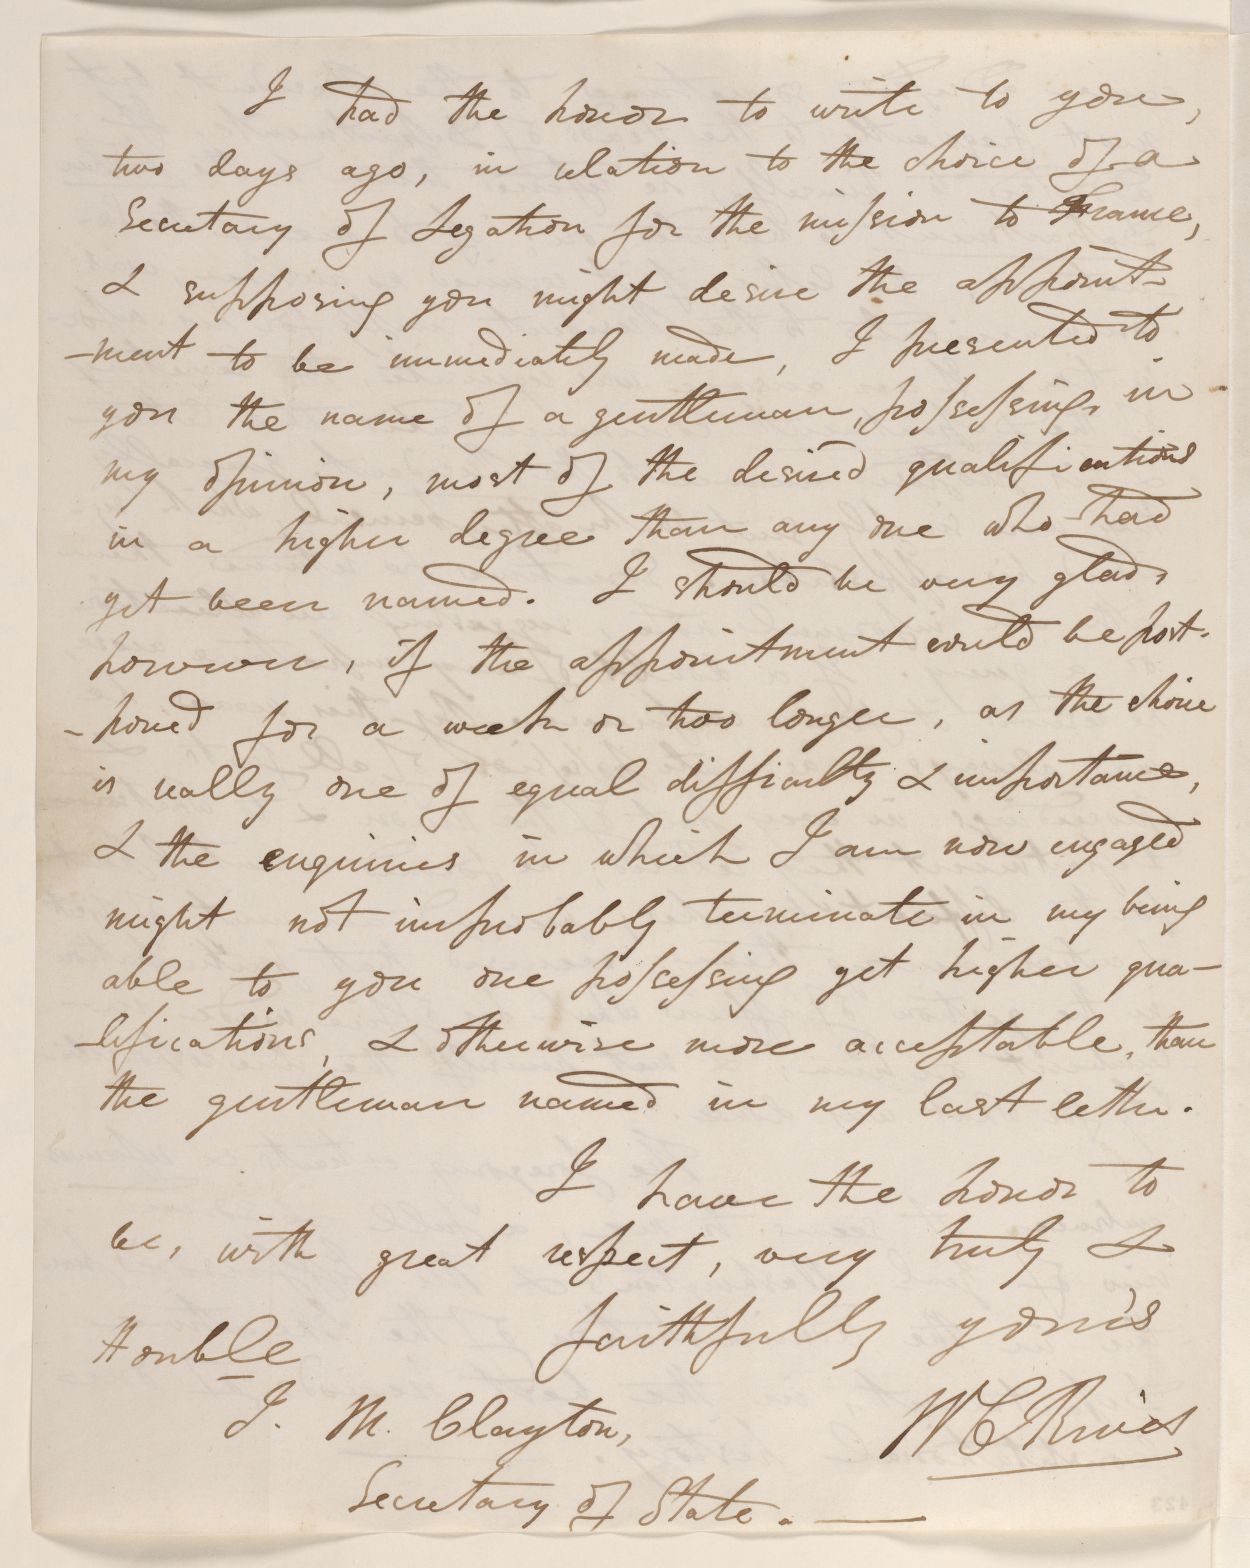 I had the honor to write to you,
two days ago, in relation to the choice of a
Secretary of Legation for the mission to France,
& supposing you might desire the appoint-
-ment to be immediately made, I presented to
you the name of a gentleman, possessing, in
my opinion, most of the desired qualifications
in a higher degree than any one who had
yet been named. I should be very glad,
however, if the appointment could be post-
-poned for a week or two longer, as the choice
is really one of equal difficulty & importance,
& the enquiries in which I am now engaged
might not improbably terminate in my being
able to you one possessing yet higher qua-
-lifications, & otherwise more acceptable, than
the gentleman named in my last letter.
I have the honor to
be, with great respect, very truly &
faithfully your's
Honble
W C Rives
J. M. Clayton,
Secretary of State.